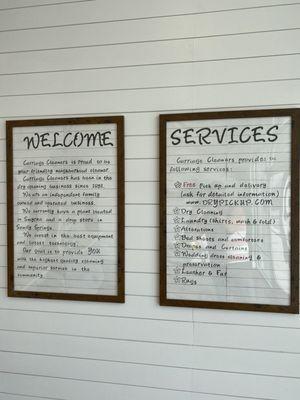 WELCOME
Curries Cleaners is Proud to be
your friendly neighborhood cleaner.
Curries Cleaners has been in the
dry cleaning business since
We are an independent family
owned and operated business.
We currently have a plant located
in and a dry store in
Sandy Springs.
We invest in the best equipment
and latest technology.
Our goal is to provide YOU
with the highest quality cleaning
and superior service in the
community.
SERVICES
Curries Cleaners provides the
following services:
Free Pick up and delivery
(ask for detailed information)
WWW.DRYPICKUP.COM
Dry Cleaning
Laundry (shirts, wash & fold)
Alterations
Bed Sheets and comforters
Drapes and Curtains
Wedding dress cleaning &
preservation
Leather & Fur
Rugs